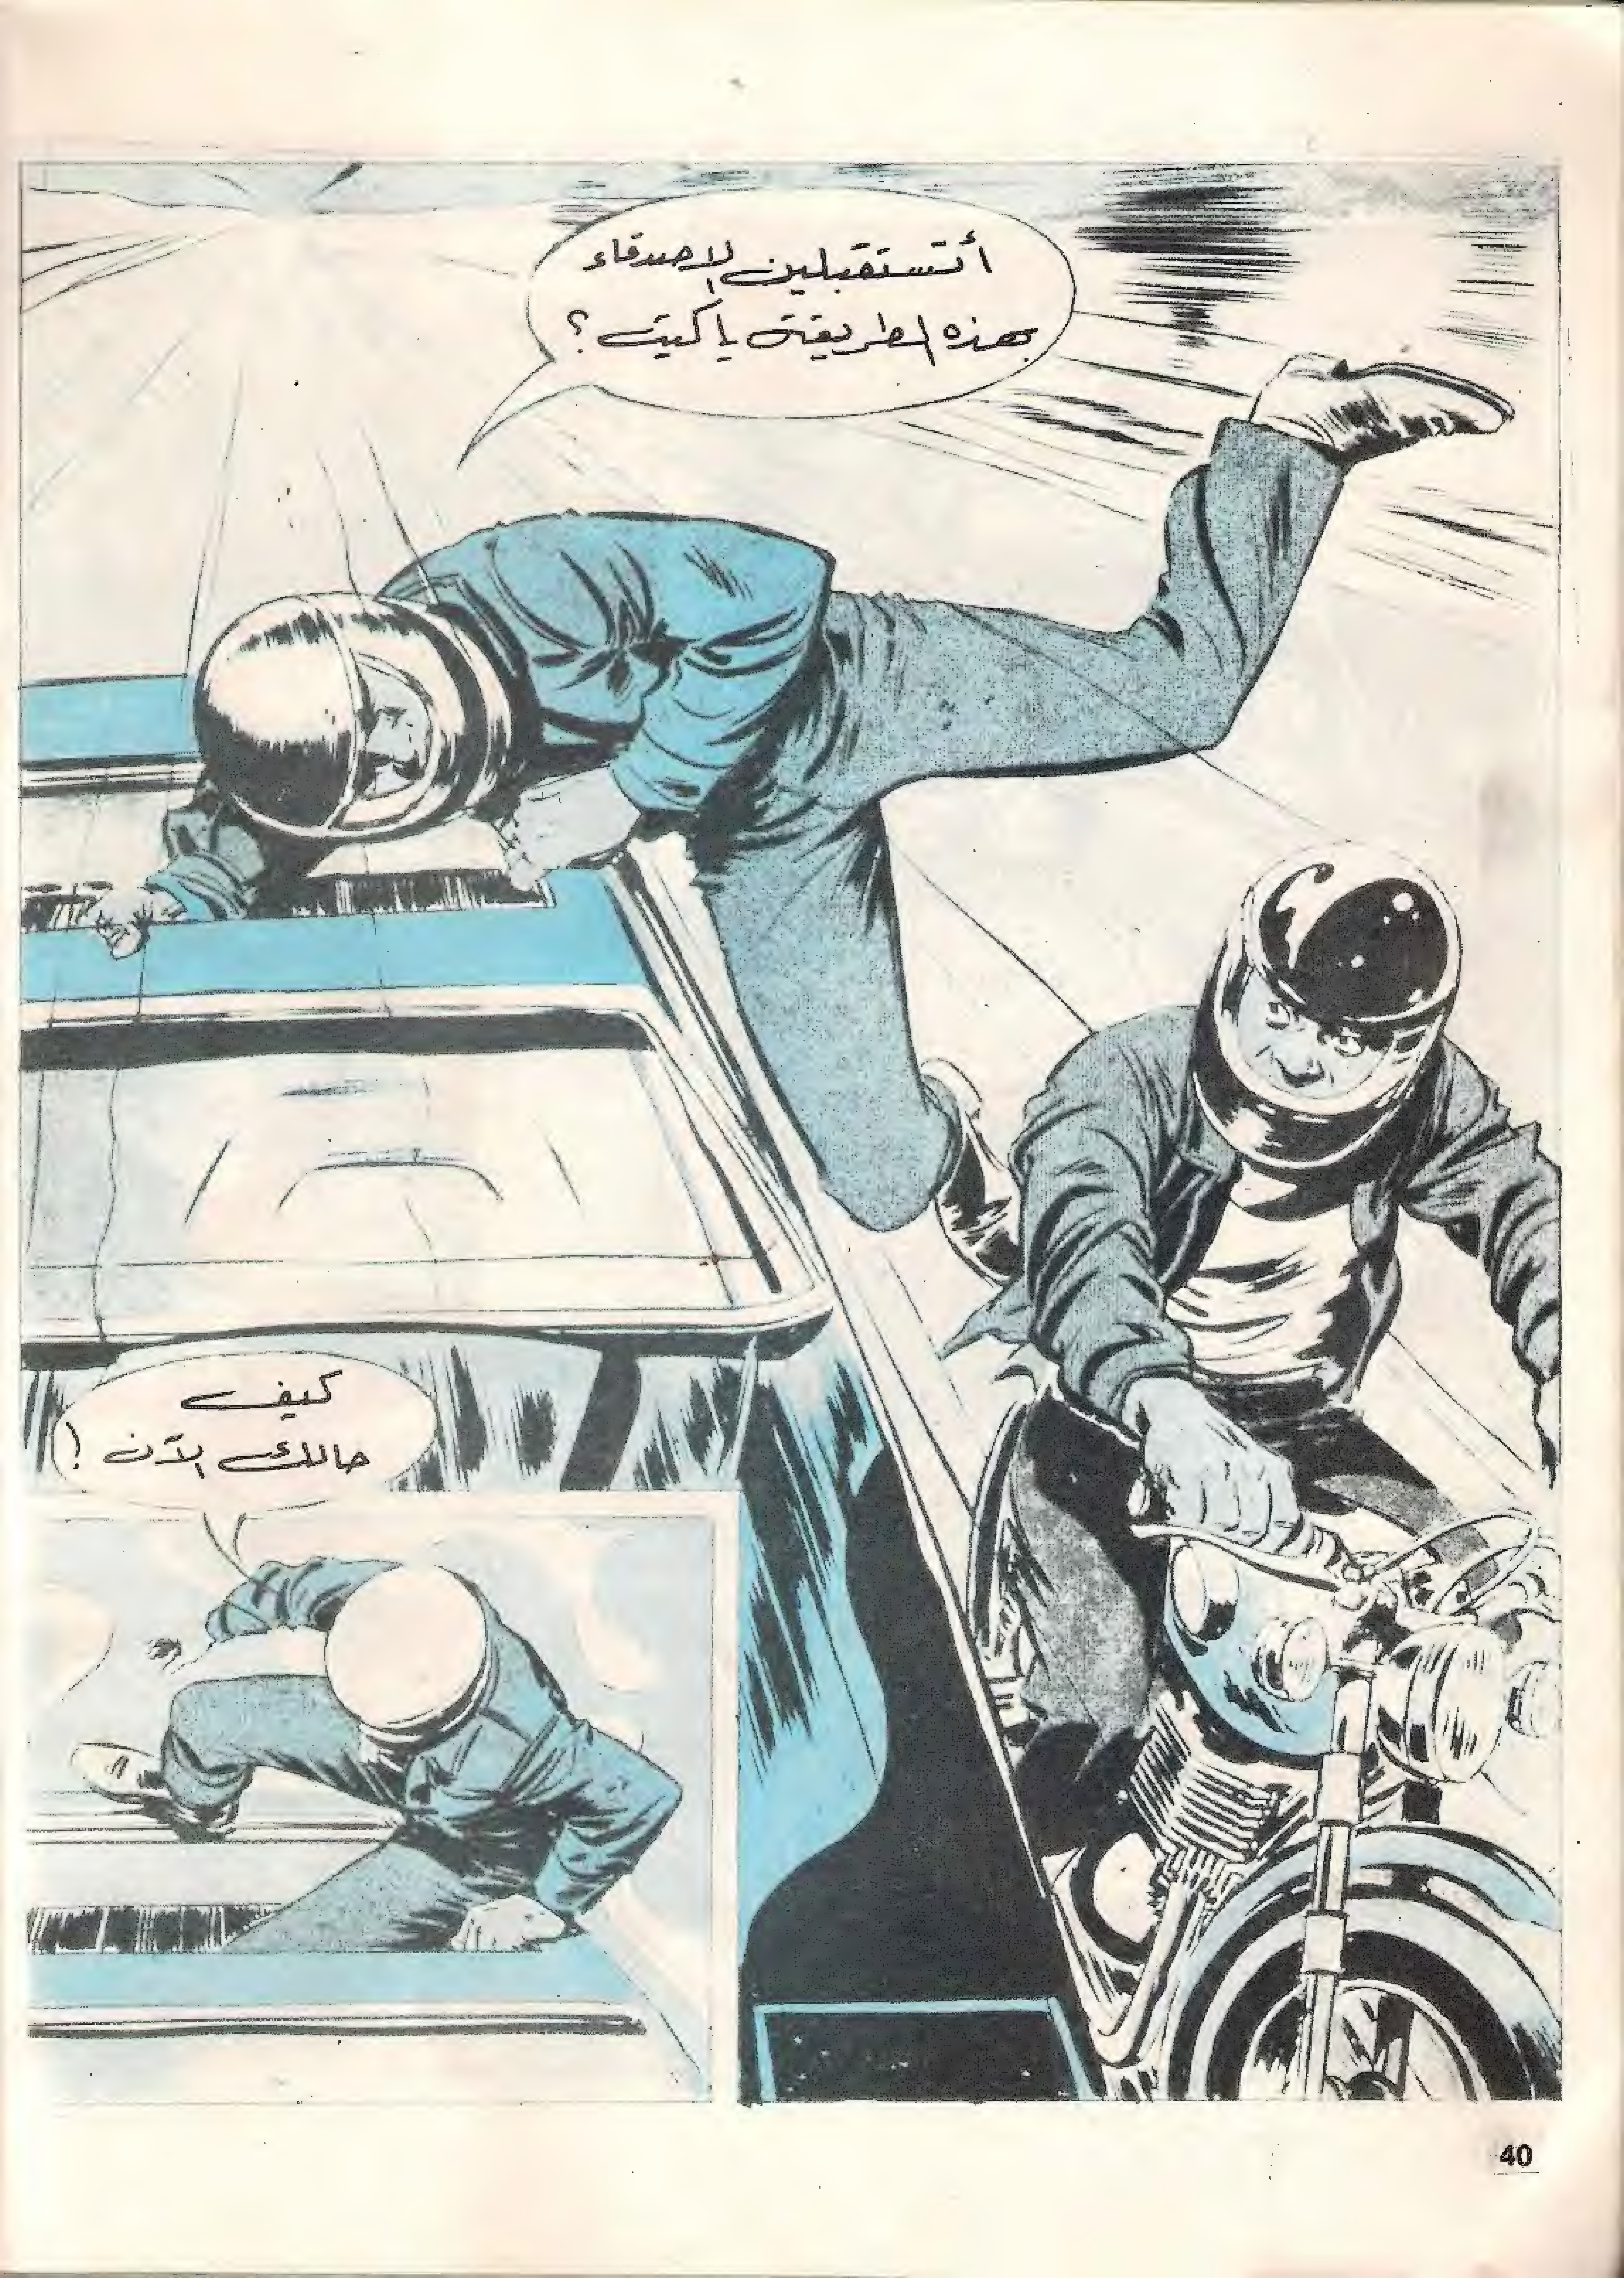 أتستقبلين الاصدقاء
بهذه الطريقة ياكيت ؟
كيف
حالك الآن !
40